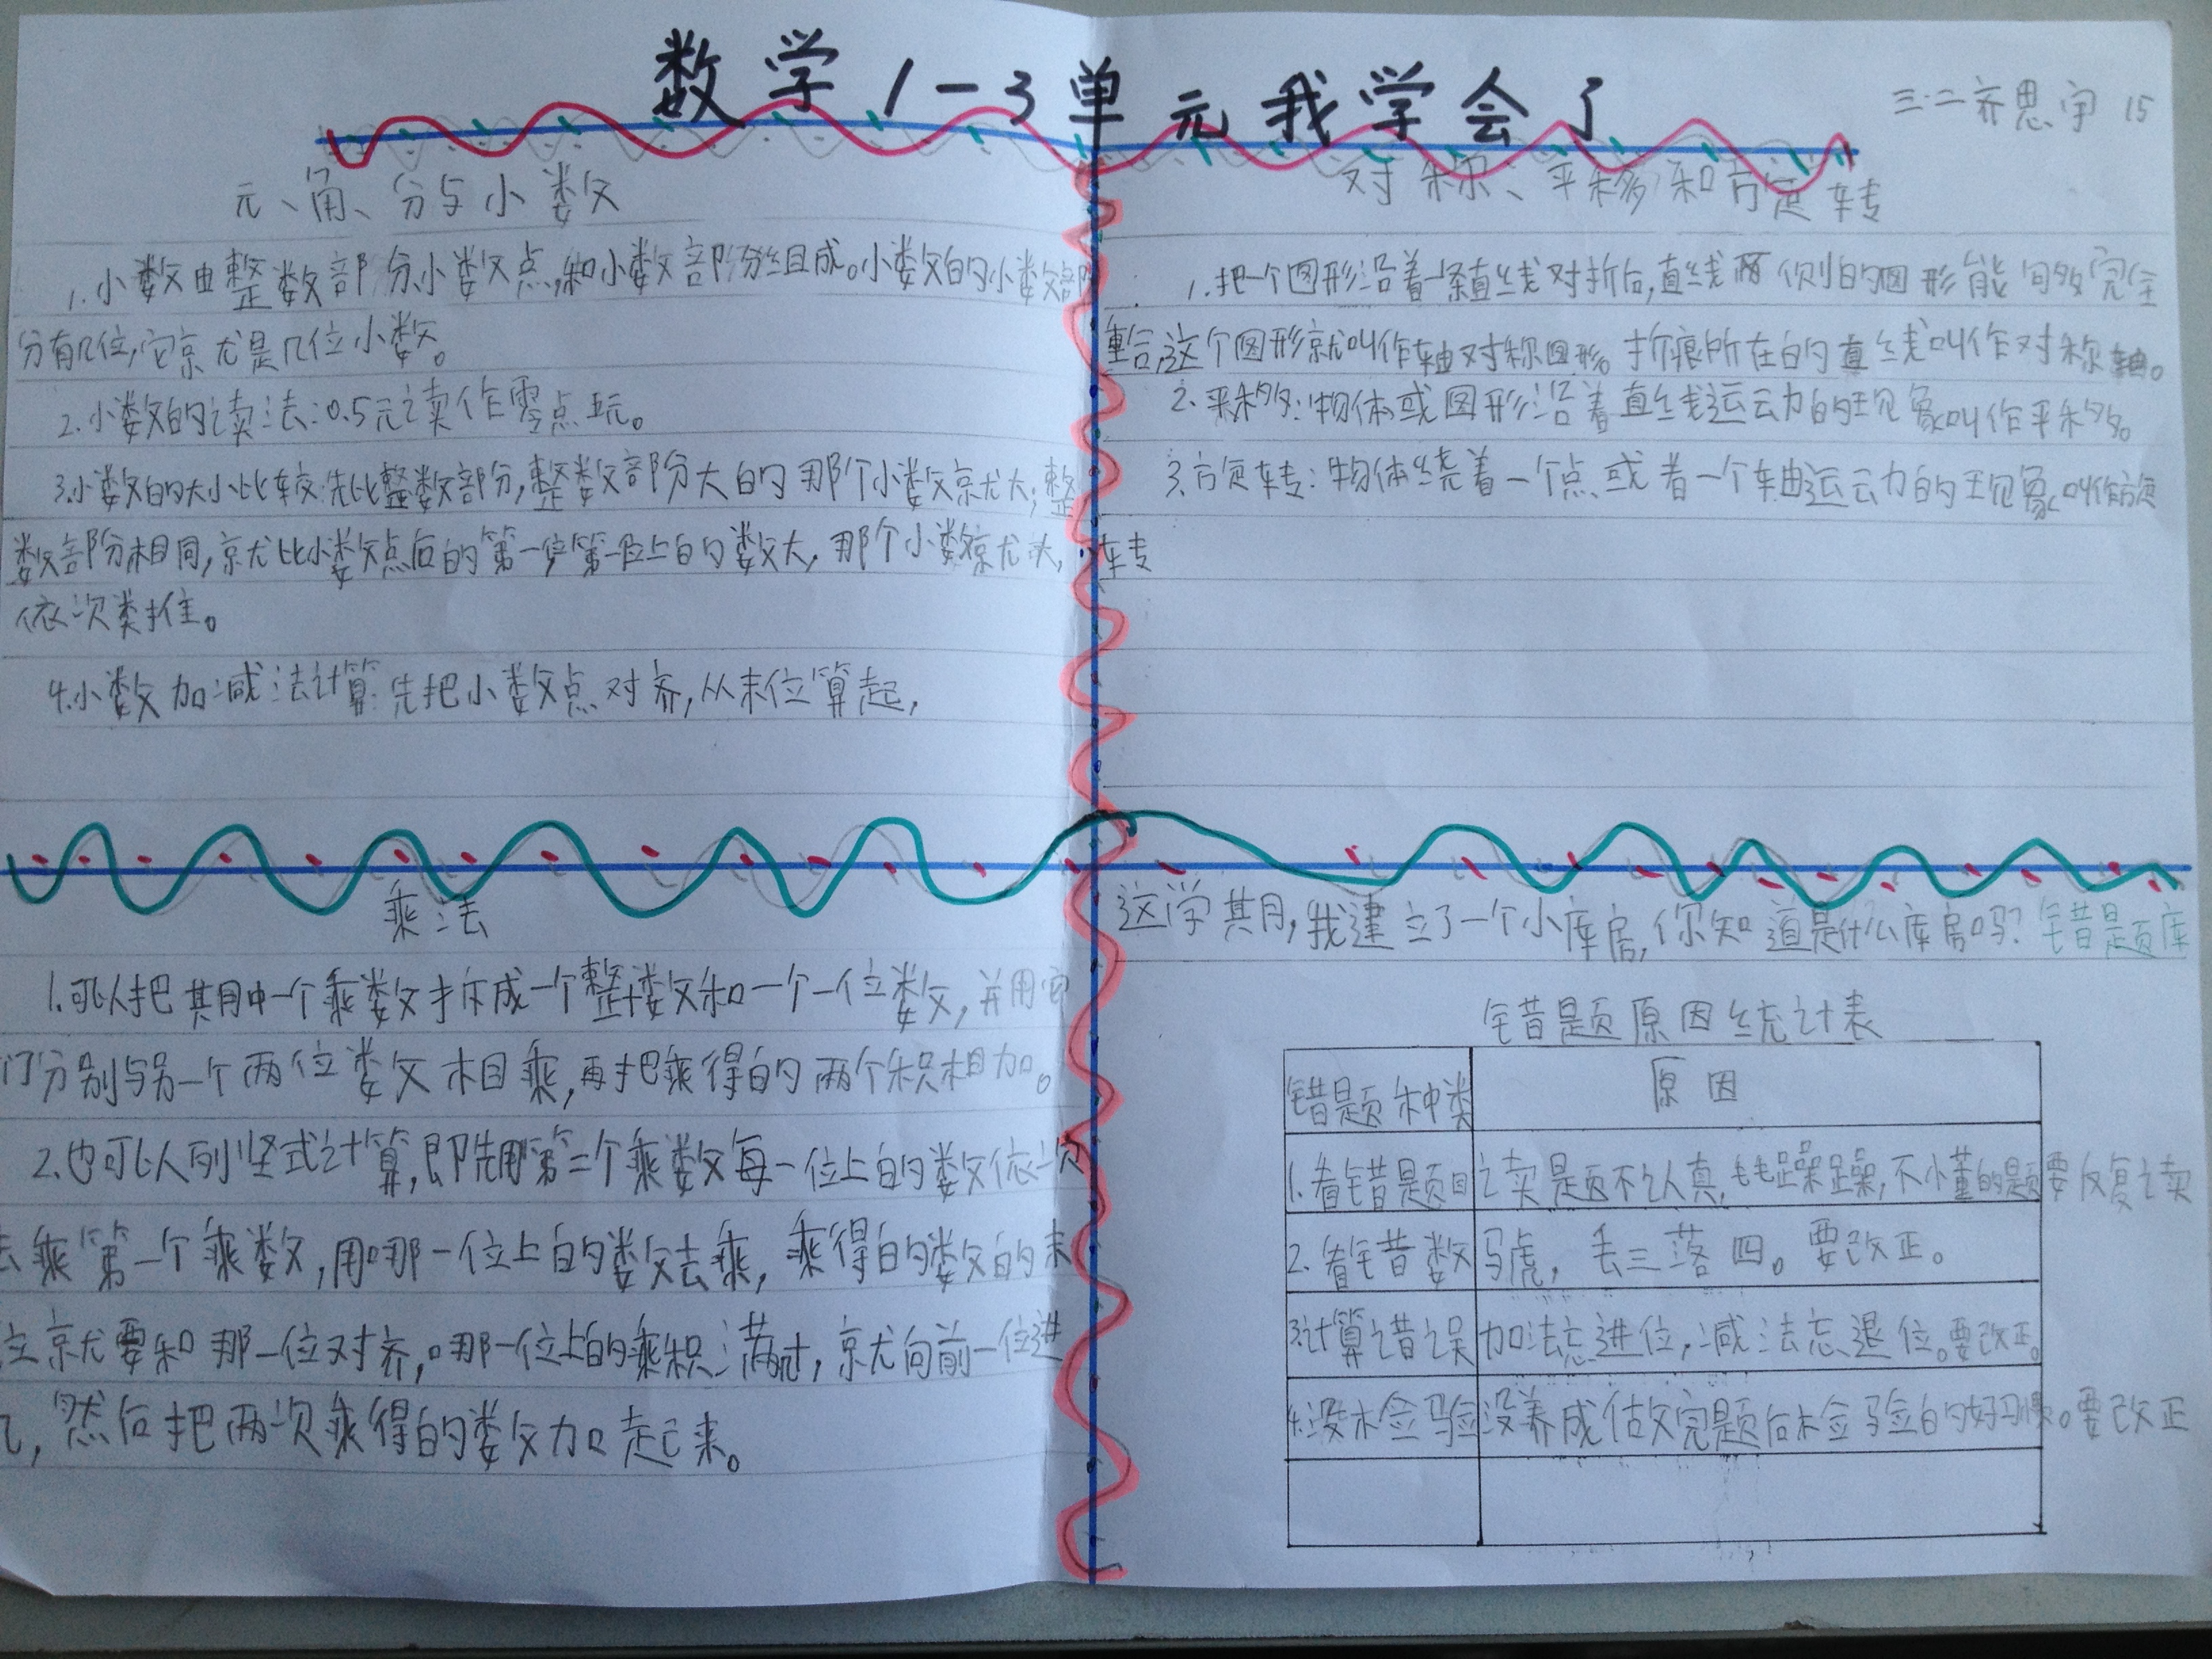 数学1-3单元我学会了
三.二齐思宇 15
元、角、分与小数
1.小数由整数部分,小数点,和小数部分组成。小数的小数部
分有几位,它就是几位小数。
2.小数的读法:0.5元读作零点五元。
3.小数的大小比较:先比整数部分,整数部分大的那个小数就大;整
数部分相同,就比小数点后的第一位,第一位上的数大,那个小数就大,
依次类推。
4.小数加减法计算:先把小数点对齐,从末位算起,
对称、平移和旋转
1.把一个图形沿着一条直线对折后,直线两侧的图形能够完全
重合,这个图形就叫作轴对称图形。折痕所在的直线叫作对称轴。
2.平移:物体或图形沿着直线运动的现象叫作平移。
3.旋转:物体绕着一个点或者一个轴运动的现象叫作旋
转
乘法
1.可以把其中一个乘数拆成一个整十数和一个一位数,并用它
们分别与另一个两位数相乘,再把乘得的两个积相加。
2.也可以列竖式计算,即先用第二个乘数每一位上的数依次
去乘第一个乘数,用哪一位上的数去乘,乘得的数的末
位就要和那一位对齐,哪一位上的乘积满时,就向前一位进
几,然后把两次乘得的数加起来。
这学期,我建立了一个小库房,你知道是什么库房吗?错题库
错题原因统计表
错题种类 原因
1.看错题目 读题不认真,毛毛躁躁,不懂的题要反复读
2.看错数 马虎,丢三落四。要改正。
3.计算错误 加法忘进位,减法忘退位。要改正。
4.没检验 没养成做完题后检验的好习惯。要改正